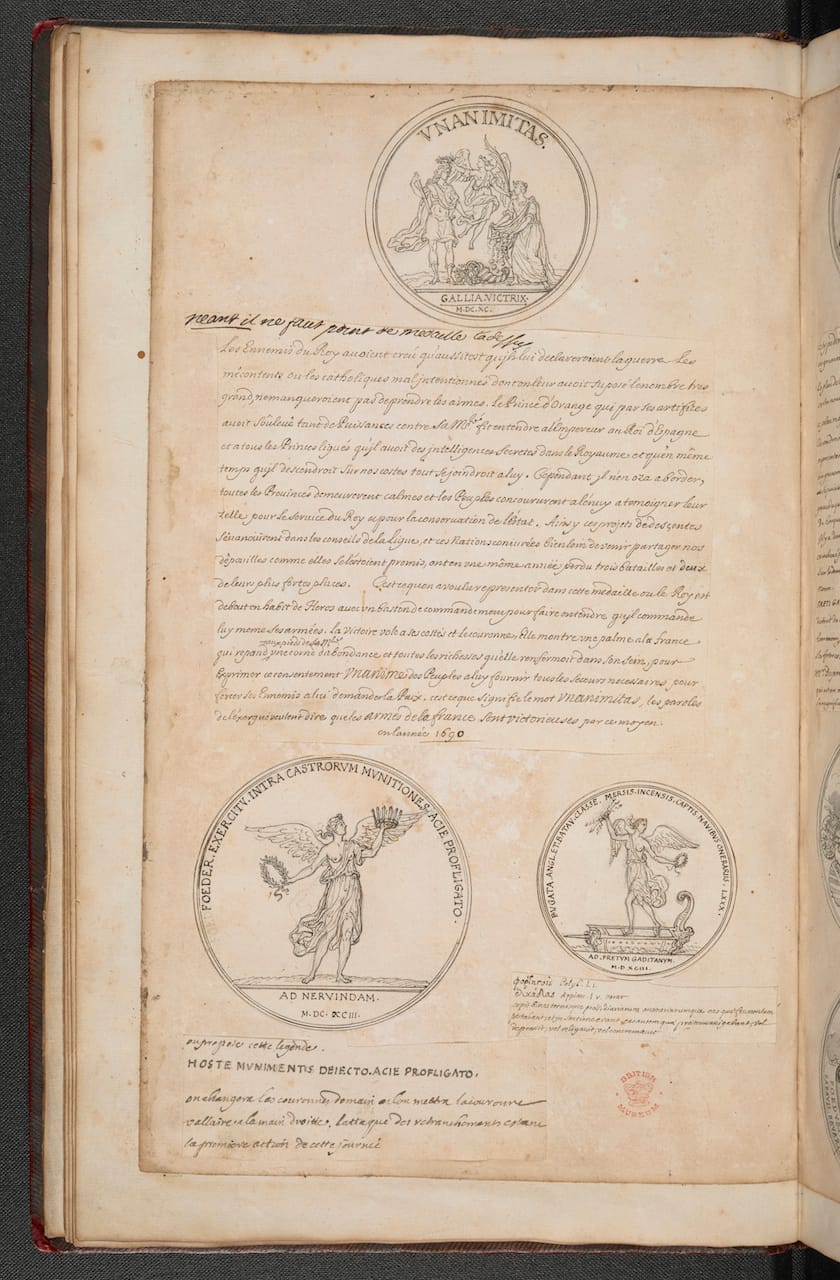 VNANIMITAS.
GALLIA VICTRIX.
M.DC.XC.
neant il ne faut point de medaille la dessus
Les Ennemis du Roy auoient creu qu'aussitost qu'jls lui declareroient la guerre Les
mécontents ou les catholiques mal jntentionnés dont on leur auoit suposé le nombre tres
grand, ne manqueroient pas de prendre les armes. Le Prince d'Orange qui par ses artifices
auoit souleué tant de Puissances contre Sa Mté fit entendre a l'Empereur au Roi d'Espagne
et a tous les Princes ligués qu'jl auoit des jntelligences secretes dans le Royaume et qu'en même
temps qu'jl descendroit sur nos costes tout se joindroit a luy. Cependant jl n'en oza aborder,
toutes les Prouinces demeurerent calmes et les Peuples concoururent a l'enuy a temoigner leur
zelle pour le seruice du Roy et pour la conseruation de l'Estat. Ainsy ces projets de descentes
s'éuanouirent dans les conseils de la Ligue, et ces Nations conjurées bien loin de venir partager nos
dépouilles comme elles se l'estoient promis, ont en une même année perdu trois batailles et deux
de leurs plus fortes places. C'est ce qu'on a voulu representer dans cette medaille ou le Roy est
debout en habit de Heros auec vn baston de commandement pour faire entendre qu'jl commande
luy meme ses armées. la Victoire vole a ses costés et le couronne, Elle montre vne palme a la france
qui repand aux pieds de sa Mté vne corne d'abondance et toutes les richesses qu'elle renfermoit dans son sein, pour
exprimer ce consentement Vnanime des Peuples a luy fournir tous les secours necessaires pour
forcer ses Ennemis a lui demander la Paix. c'est ce que signifie le mot Vnanimitas, les paroles
de l'éxergue veulent dire que les armes de la france sont victorieuses par ce moyen.
en l'année 1690
FOEDER. EXERCITV. INTRA CASTRORVM MVNITIONES. ACIE PROFLIGATO.
AD NERVINDAM.
M.DC.XCIII.
FVGATA ANGL. ET BATAV. CLASSE. MERSIS. INCENSIS. CAPTIS. NAVIBVS ONERARIIS. LXXX.
AD. FRETVM GADITANVM.
M.D XCIII.
Polyb. l. 1.
Appian. l. v.
on propose cette legende.
HOSTE MVNIMENTIS DEIECTO. ACIE PROFLIGATO.
on changera les couronnes de main et l'on mettra la couronne
vallaire a la main droitte, l'attaque des retranchements estant
la premiere action de cette journée
BRITISH
MUSEUM